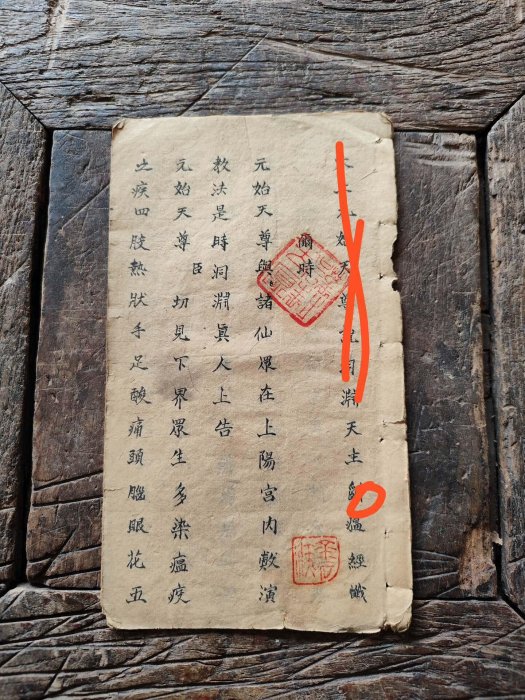 元始天尊說洞淵天主斷瘟經懺
爾時
元始天尊與諸仙眾在上陽宮內敷演
教法是時洞淵眞人上告
元始天尊臣切見下界眾生多染瘟疫
之疾四肢熱狀手足酸痛頭腦眼花五